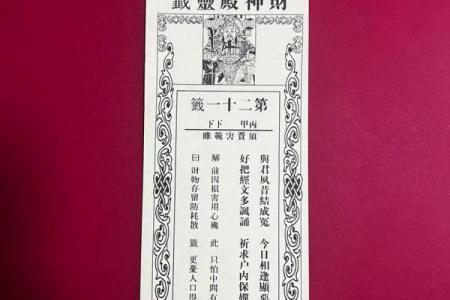 財神殿靈籤
第二十一籤
丙甲 下下
須賈害範睢
與君夙昔結成冤 今日相逢顯
好把經文多諷誦 祈求户內保
解 前因損害用心機 此 只怕中間有
曰 財物存留防耗散 籤 更憂人口